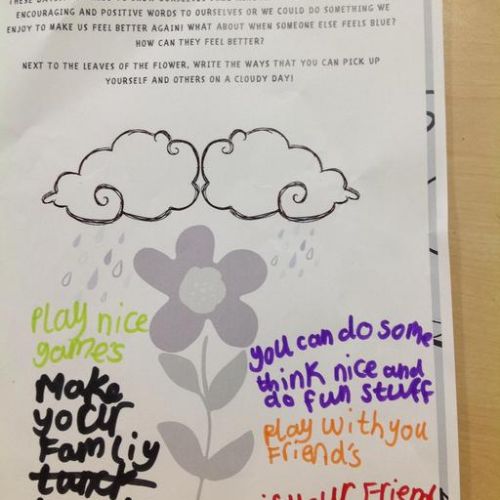 ENCOURAGING AND POSITIVE WORDS TO OURSELVES OR WE COULD DO SOMETHING WE
ENJOY TO MAKE US FEEL BETTER AGAIN! WHAT ABOUT WHEN SOMEONE ELSE FEELS BLUE?
HOW CAN THEY FEEL BETTER?
NEXT TO THE LEAVES OF THE FLOWER, WRITE THE WAYS THAT YOU CAN PICK UP
YOURSELF AND OTHERS ON A CLOUDY DAY!
Play nice
games
Make
your
Famliy
you can do some
think nice and
do fun stuff
play with you
Friend's
if your Friend